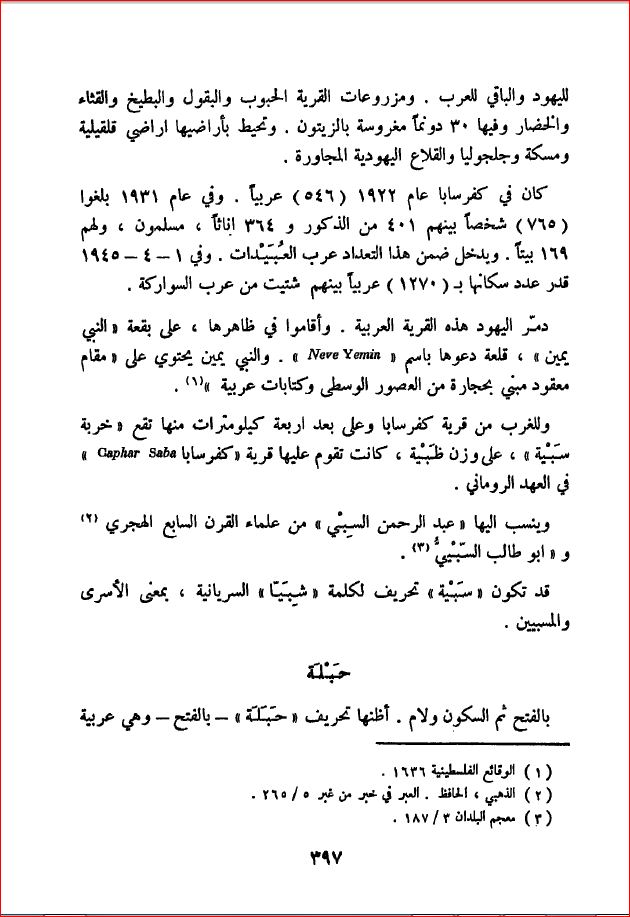 لليهود والباقي للعرب . ومزروعات القرية الحبوب والبقول والبطيخ والقثاء
والخضار وفيها ٣٠ دونماً مغروسة بالزيتون . وتحيط بأراضيها اراضي قلقيلية
ومسكة وجلجوليا والقلاع اليهودية المجاورة .
كان في كفرسابا عام ١٩٢٢ (٥٤٦) عربياً . وفي عام ١٩٣١ بلغوا
(٧٦٥) شخصاً بينهم ٤٠١ من الذكور و ٣٦٤ اناثاً ، مسلمون ، ولهم
١٦٩ بيتاً . ويدخل ضمن هذا التعداد عرب العُبَيْدات . وفي ١ – ٤ – ١٩٤٥
قدر عدد سكانها بـ (١٢٧٠) عربياً بينهم شتيت من عرب السواركة .
دمّر اليهود هذه القرية العربية . وأقاموا في ظاهرها ، على بقعة «النبي
يمين» ، قلعة دعوها باسم « Neve Yemin » . والنبي يمين يحتوي على «مقام
معقود مبني بحجارة من العصور الوسطى وكتابات عربية »(١) .
وللغرب من قرية كفرسابا وعلى بعد اربعة كيلومترات منها تقع «خربة
سَبْيَة» ، على وزن ظَبْيَة ، كانت تقوم عليها قرية «كفرسابا Caphar Saba »
في العهد الروماني .
وينسب اليها «عبد الرحمن السِبْي» من علماء القرن السابع الهجري (٢)
و «ابو طالب السّبْيِيُّ (٣) .
قد تكون «سَبْيَة» تحريف لكلمة «شِبَيّا» السريانية ، بمعنى الأسرى
والمسبيين .
حَبْلَة
بالفتح ثم السكون ولام . أظنها تحريف «حَبَلَة» – بالفتح – وهي عربية
(١) الوقائع الفلسطينية ١٦٣٦ .
(٢) الذهبي ، الحافظ . العبر في خبر من غبر ٥ / ٢٦٥ .
(٣) معجم البلدان ٣ / ١٨٧ .
٣٩٧